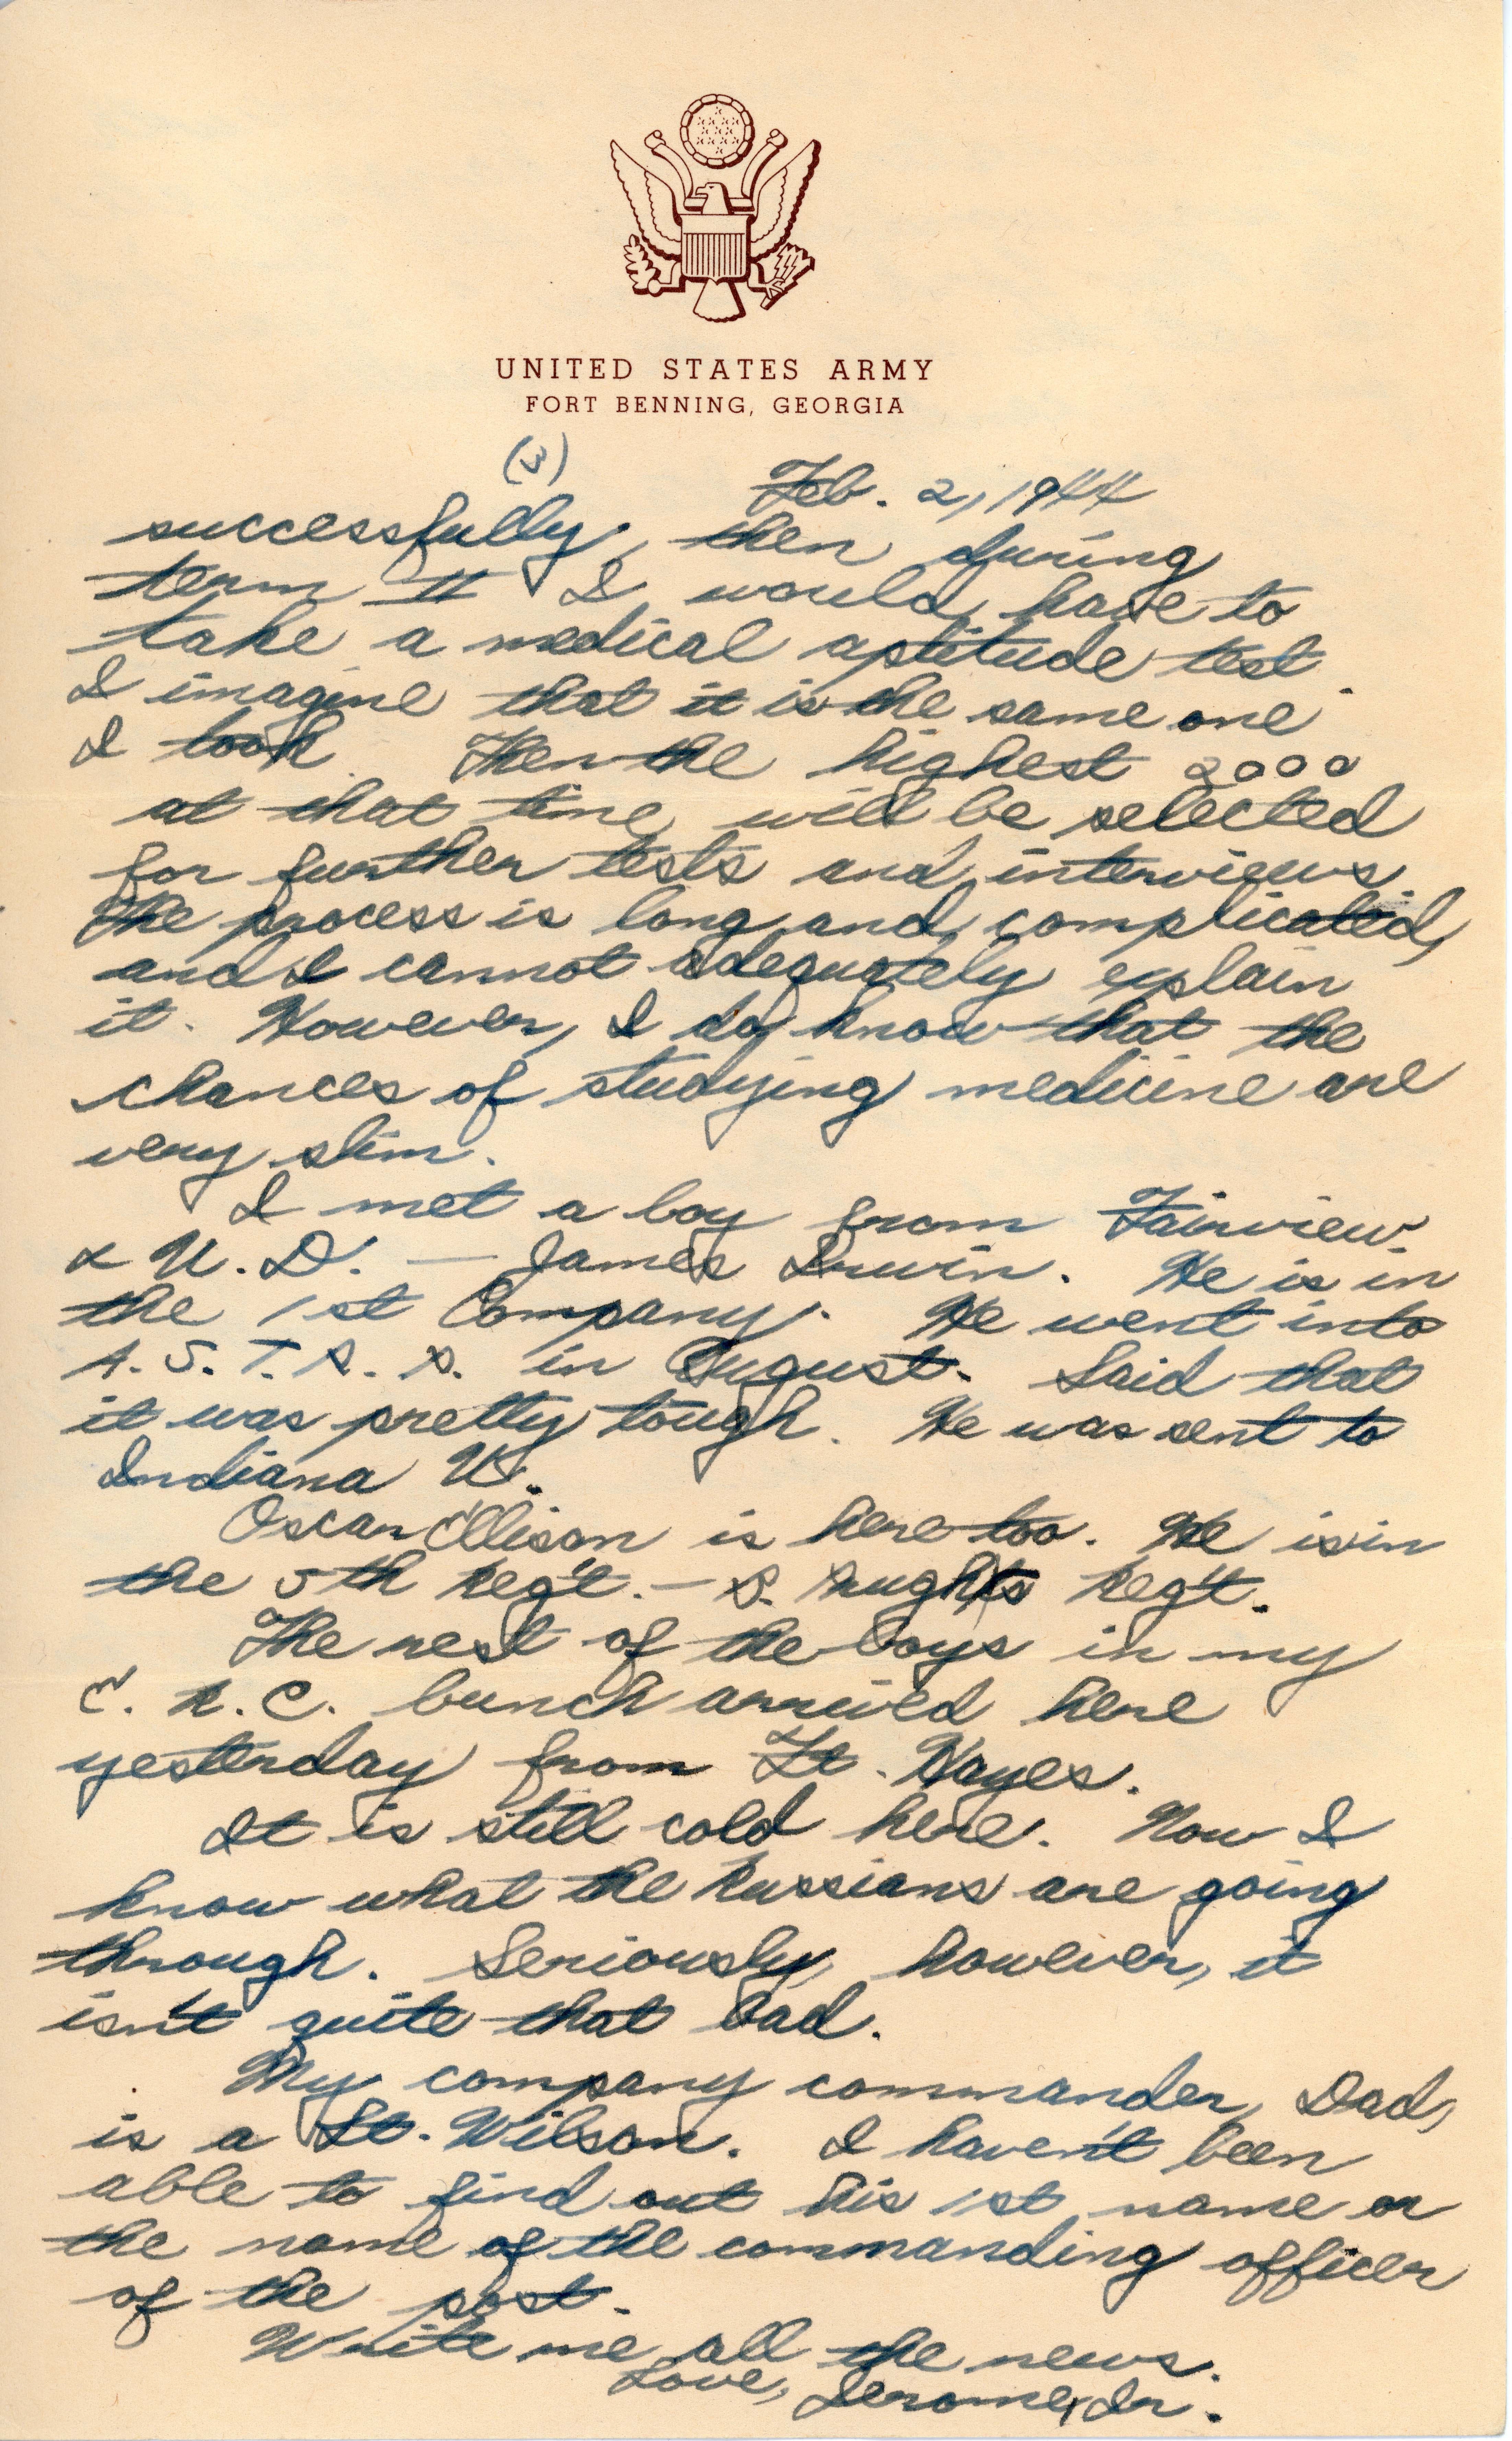 UNITED STATES ARMY
FORT BENNING, GEORGIA
(3)
Feb. 2, 1944
successfully, then during
term II I would have to
take a medical aptitude test.
I imagine that it is the same one
I took. Then the highest 2000
at that time will be selected
for further tests and interviews.
The process is long and complicated,
and I cannot adequately explain
it. However, I do know that the
chances of studying medicine are
very slim.
I met a boy from Fairview
& U. D. — James Irwin. He is in
the 1st Company. He went into
A. S. T. R. P. in August. Said that
it was pretty tough. He was sent to
Indiana U.
Oscar Ellison is here too. He is in
the 5th Reg't. — P. Reg't.
The rest of the boys in my
E. R. C. bunch arrived here
yesterday from Ft. Hayes.
It is still cold here. Now I
know what the Russians are going
through. Seriously, however, it
isn't quite that bad.
My company commander, Dad,
is a Lt. Wilson. I haven't been
able to find out his 1st name or
the name of the commanding officer
of the post.
Write me all the news.
Love, Jerome, Jr.